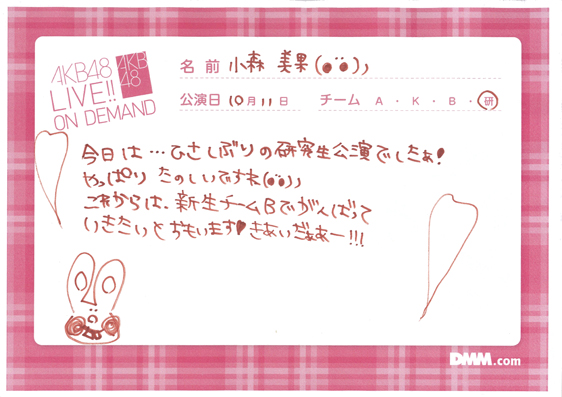 AKB48
LIVE!!
ON DEMAND
AKB
48
名前 小森 美果(●ö●)))
公演日 10月11日 チーム A・K・B・研
今日は…ひさしぶりの研究生公演でしたぁ!
やっぱり たのしいですね(●●)))
これからは、新生チームBでがんばって
いきたいとおもいます♥きあいだぁあー!!!
DMM.com